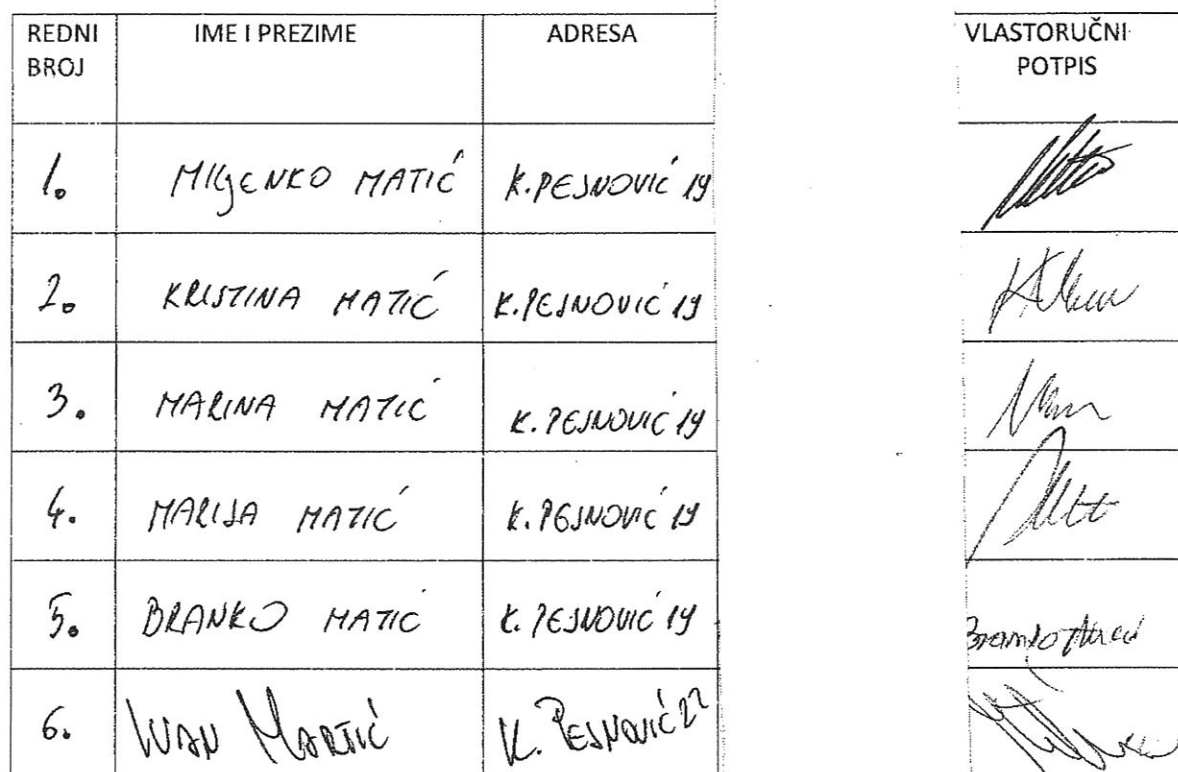 REDNI BROJ IME I PREZIME ADRESA VLASTORUČNI POTPIS
1. MILJENKO MATIĆ K. PEJNOVIĆ 19
2. KRISTINA MATIĆ K. PEJNOVIĆ 19
3. MARINA MATIĆ K. PEJNOVIĆ 19
4. MARIJA MATIĆ K. PEJNOVIĆ 19
5. BRANKO MATIĆ K. PEJNOVIĆ 19 Branko Matić
6. IVAN MARTIĆ K. PEJNOVIĆ 22